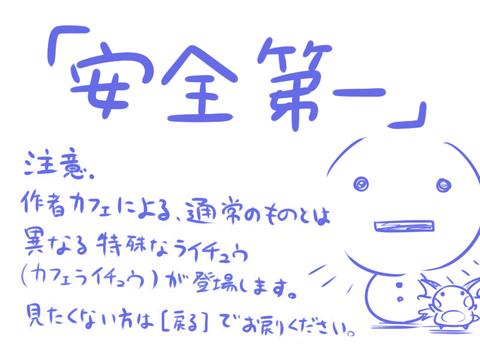 「安全第一」
注意.
作者カフェによる、通常のものとは
異なる特殊なライチュウ
(カフェライチュウ)が登場します。
見たくない方は[戻る]でお戻りください。